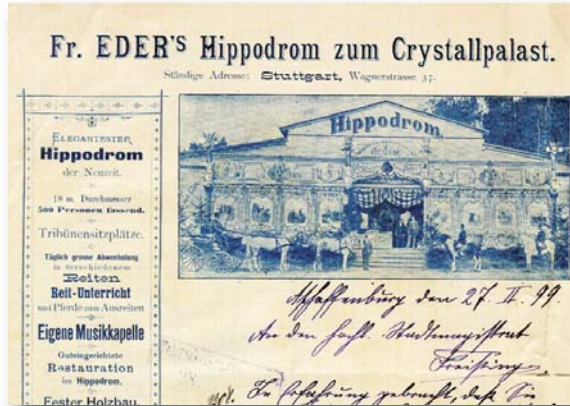 Fr. EDER'S Hippodrom zum Crystallpalast.
Ständige Adresse: Stuttgart, Wagnerstrasse 37.
ELEGANTESTER
Hippodrom
der Neuzeit.
18 m. Durchmesser
500 Personen fassend.
Tribünensitzplätze.
Täglich grosse Abwechslung
in verschiedenem
Reiten
Reit-Unterricht
und Pferde zum Ausreiten
Eigene Musikkapelle
Guteingerichtete
Restauration
im Hippodrom.
Fester Holzbau.
Hippodrom.
Aschaffenburg den 27. II. 99.
An den hochl. Stadtmagistrat
Freising
In Erfahrung gebracht, daß Sie